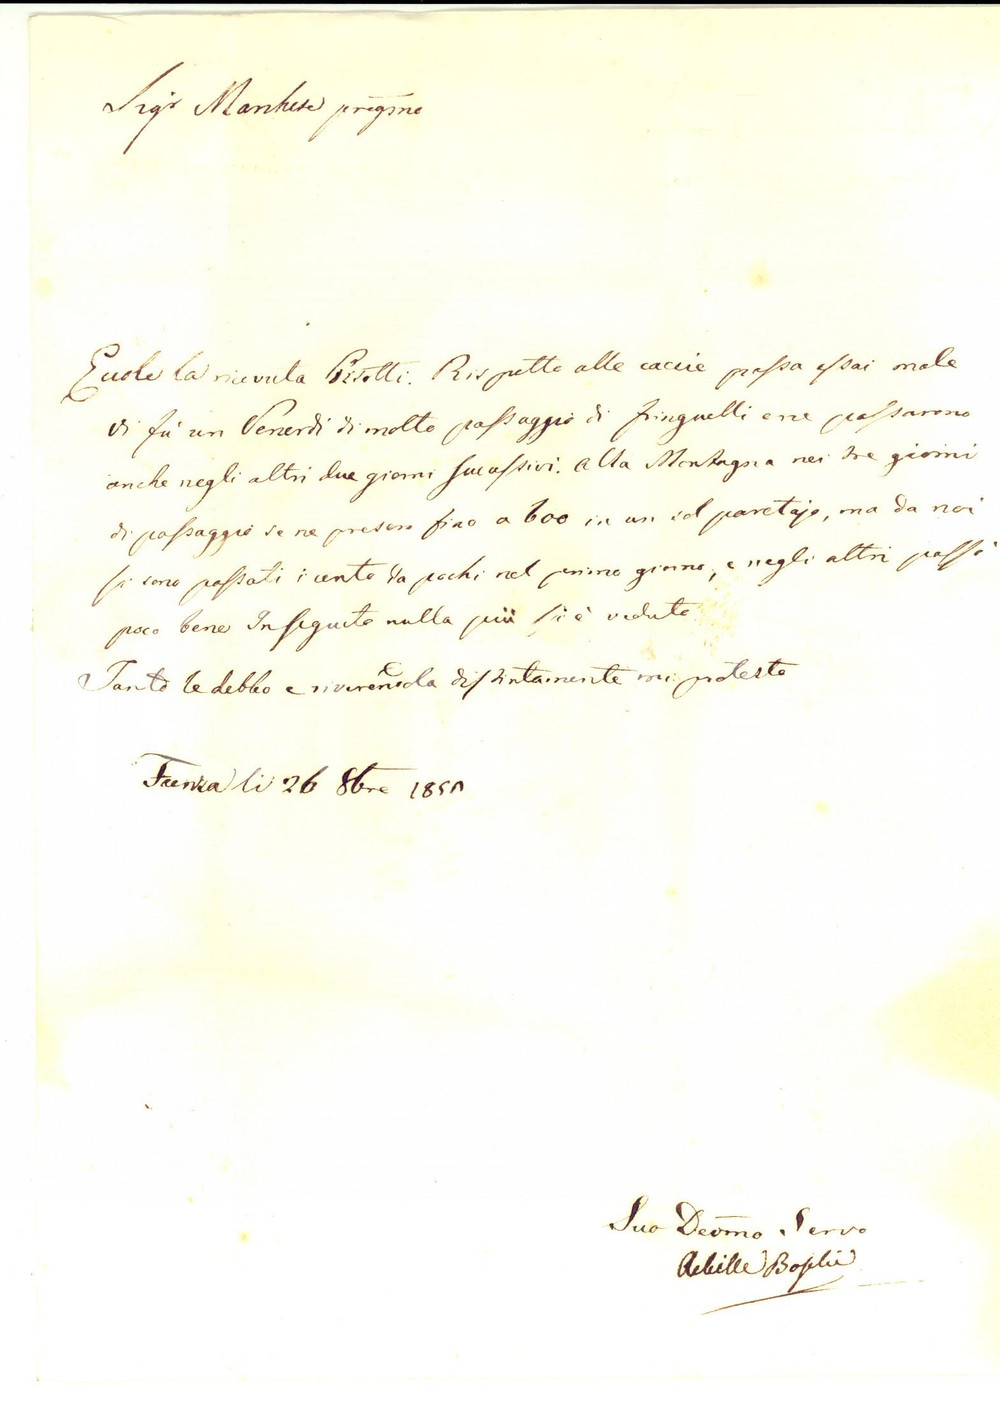 Sigr Marchese pregmo
Eccole la ricevuta Pisotti. Rispetto alle caccie passa assai male
Vi fù un Venerdì di molto passaggio di fringuelli e ne passarono
anche negli altri due giorni successivi. Alla Montagna nei tre giorni
di passaggio se ne presero fino a 600 in un sol paretajo, ma da noi
si sono passati i cento da pochi nel primo giorno, e negli altri passò
poco bene In seguito nulla più si è veduto
Tanto le debbo e riverendola distintamente mi protesto
Faenza li 26 8bre 185
Suo Devmo Servo
Achille